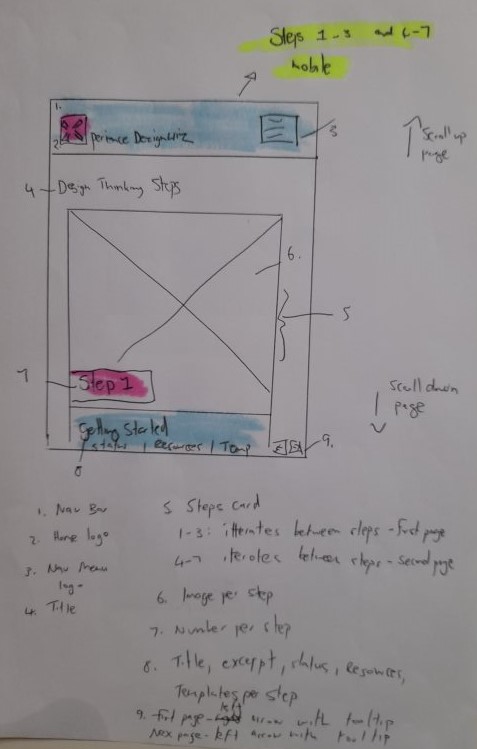 Steps 1-3 and 4-7
mobile
1.
2.
perience Designwiz
3
Scroll up
page
4
Design Thinking Steps
6.
5
7
Step 1
Scroll down
page
Getting Started
status | Resources | Temp
8
9.
1. Nav Bar
2. Home logo
3. Nav Menu
logo
4. Title
5 Steps card
1-3: itterates between steps - first page
4-7 iterates between steps - second page
6. Image per step
7. Number per step
8. Title, excerpt, status, Resources,
Templates per step
9. First page - left arrow with tooltip
Nex page - left arrow with tooltip